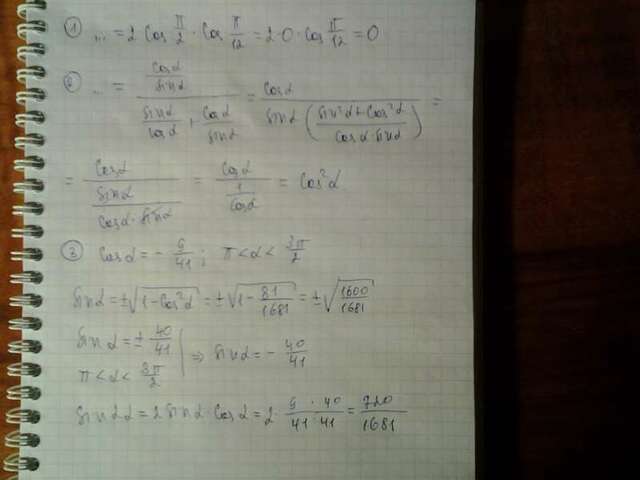 ① ... = 2 cos π/2 · cos π/12 = 2·0·cos π/12 = 0
② ... = (cosα/sinα)/(sinα/cosα + cosα/sinα) = cosα/(sinα((sin²α + cos²α)/(cosα·sinα))) =
= cosα/(sinα/(cosα·sinα)) = cosα/(1/cosα) = cos²α
③ cosα = - 9/41; π<α< 3π/2
sinα = ±√(1-cos²α) = ±√(1 - 81/1681) = ±√(1600/1681)
sinα = ± 40/41
π<α< 3π/2
⇒ sinα = - 40/41
sin2α = 2 sinα · cosα = 2· (9 · 40)/(41 · 41) = 720/1681